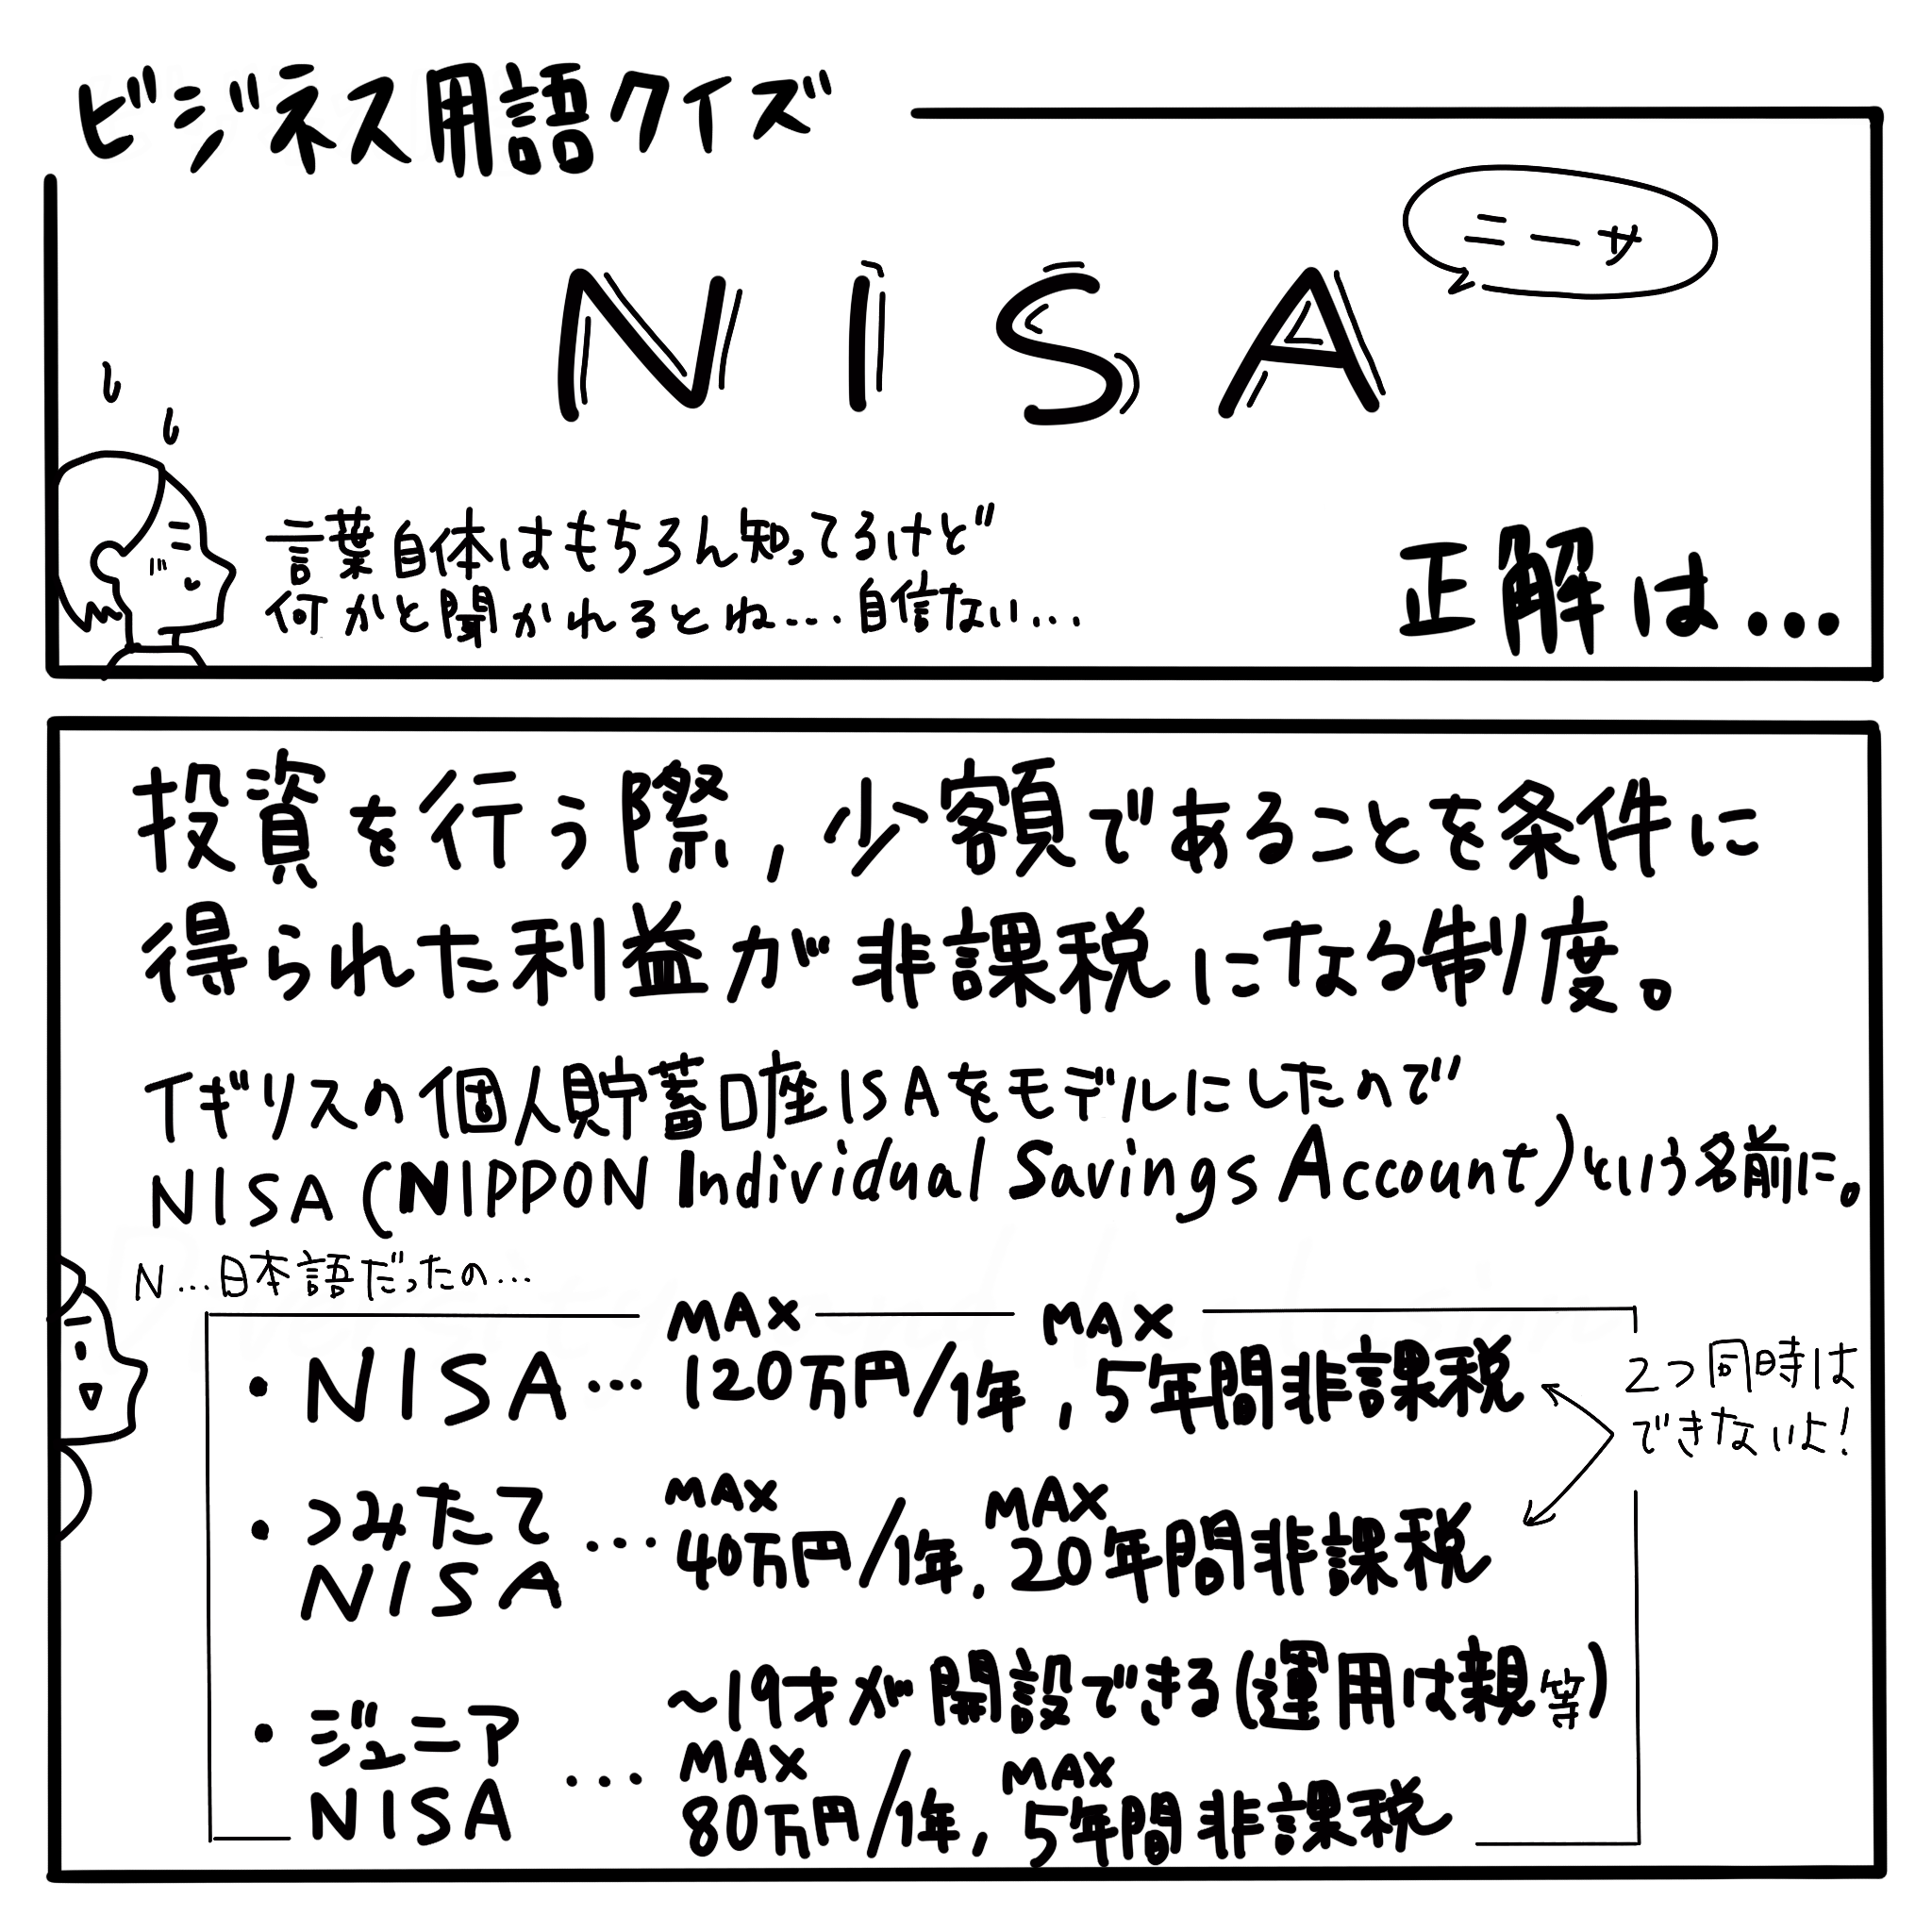 ビジネス用語クイズ
ニーサ
NISA
言葉自体はもちろん知ってるけど
何かと聞かれるとね…自信ない…
正解は…
投資を行う際,少額であることを条件に
得られた利益が非課税になる制度。
イギリスの個人貯蓄口座ISAをモデルにしたので
NISA(NIPPON Individual Savings Account)という名前に。
N…日本語だったの…
MAX MAX
・NISA… 120万円/1年,5年間非課税
2つ同時は
できないよ!
MAX MAX
・つみたて… 40万円/1年,20年間非課税
NISA
~19才が開設できる(運用は親等)
・ジュニア
MAX MAX
NISA … 80万円/1年,5年間非課税